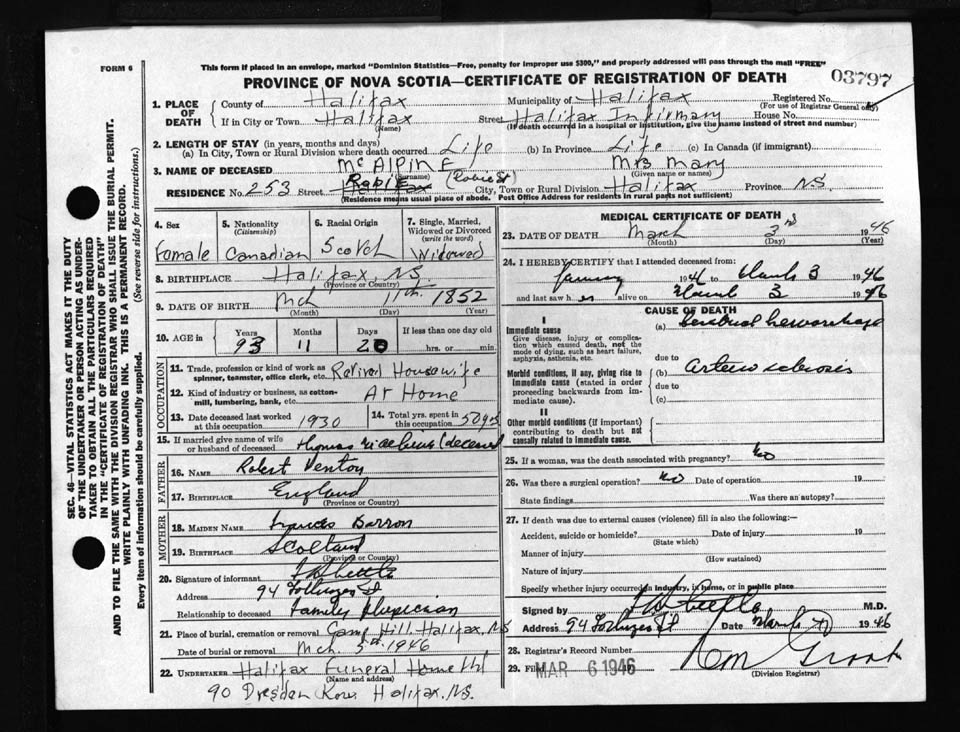 FORM 6
This form if placed in an envelope, marked "Dominion Statistics—Free, penalty for improper use $300," and properly addressed will pass through the mail "FREE"
PROVINCE OF NOVA SCOTIA—CERTIFICATE OF REGISTRATION OF DEATH
03797
1. PLACE OF DEATH County of Halifax Municipality of Halifax Registered No.
(For use of Registrar General only)
If in City or Town Halifax (Name) Street Halifax Infirmary House No.
(If death occurred in a hospital or institution, give the name instead of street and number)
2. LENGTH OF STAY (in years, months and days)
(a) In City, Town or Rural Division where death occurred Life (b) In Province Life (c) In Canada (if immigrant)
3. NAME OF DECEASED McAlpine (Surname) Mrs Mary (Given name or names)
RESIDENCE No. 253 Street City, Town or Rural Division Halifax Province N.S.
(Residence means usual place of abode. Post Office Address for residents in rural parts not sufficient)
4. Sex Female
5. Nationality (Citizenship) Canadian
6. Racial Origin Scotch
7. Single, Married, Widowed or Divorced (write the word) Widowed
8. BIRTHPLACE Halifax, N.S. (Province or Country)
9. DATE OF BIRTH Mch 11th. 1852
(Month) (Day) (Year)
10. AGE in Years 93 Months 11 Days 20 If less than one day hrs. or min.
OCCUPATION
11. Trade, profession or kind of work as spinner, teamster, office clerk, etc. Retired Housewife
12. Kind of industry or business, as cotton-mill, lumbering, bank, etc. At Home
13. Date deceased last worked at this occupation 1930
14. Total yrs. spent in this occupation 50 yrs
15. If married give name of wife or husband of deceased (deceased)
FATHER
16. Name Robert
17. Birthplace England (Province or Country)
MOTHER
18. Maiden Name Frances Barron
19. Birthplace Scotland (Province or Country)
20. Signature of informant
Address 94 St
Relationship to deceased Family Physician
21. Place of burial, cremation or removal Camp Hill, Halifax, NS
Date of burial or removal Mch. 5th 1946
22. Undertaker Halifax Funeral Home
(Name and address)
90 Dresden Row Halifax, N.S.
MEDICAL CERTIFICATE OF DEATH
23. DATE OF DEATH March 3rd 1946
(Month) (Day) (Year)
24. I HEREBY CERTIFY that I attended deceased from:
January 1946 to March 3 1946
and last saw her alive on March 3 1946
CAUSE OF DEATH
I
Immediate cause
Give disease, injury or complication which caused death, not the mode of dying, such as heart failure, asphyxia, asthenia, etc.
(a) Cerebral hemorrhage
due to
Morbid conditions, if any, giving rise to immediate cause (stated in order proceeding backwards from immediate cause).
(b) Arterio sclerosis
due to
(c)
II
Other morbid conditions (if important) contributing to death but not causally related to immediate cause.
25. If a woman, was the death associated with pregnancy? No
26. Was there a surgical operation? No Date of operation 19
State findings Was there an autopsy?
27. If death was due to external causes (violence) fill in also the following:—
Accident, suicide or homicide? Date of injury 19
(State which)
Manner of injury
(How sustained)
Nature of injury
Specify whether injury occurred in industry, in home, or in public place
Signed by M.D.
Address 94 St Date March 1946
28. Registrar's Record Number
29. Filed MAR 6 1946
(Division Registrar)
SEC. 46—VITAL STATISTICS ACT MAKES IT THE DUTY OF THE UNDERTAKER OR PERSON ACTING AS UNDERTAKER TO OBTAIN ALL THE PARTICULARS REQUIRED IN THE "CERTIFICATE OF REGISTRATION OF DEATH" AND TO FILE THE SAME WITH THE DIVISION REGISTRAR WHO SHALL ISSUE THE BURIAL PERMIT.
WRITE PLAINLY WITH UNFADING INK. THIS IS A PERMANENT RECORD.
Every item of information should be carefully supplied. (See reverse side for instructions.)